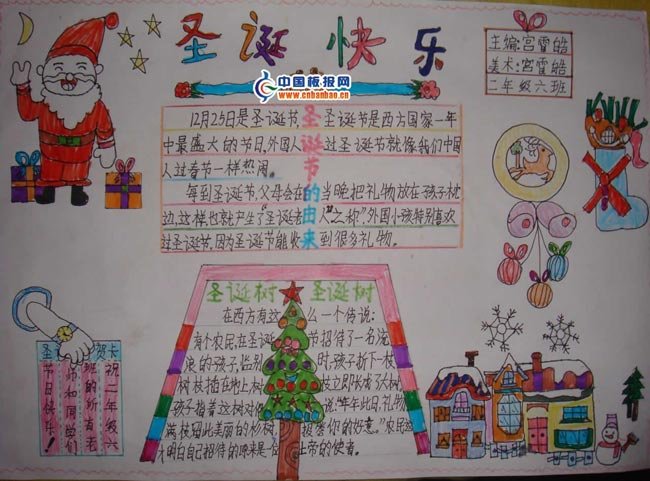 圣诞快乐
主编:宫雷皓
美术:宫雷皓
二年级六班
中国板报网
www.cnbanbao.cn
12月25日是圣诞节,圣诞节是西方国家一年
中最盛大的节日,外国人过圣诞节就像我们中国
人过春节一样热闹。
每到圣诞节,父母会在当晚把礼物放在孩子枕
边,这样,也就产生了“圣诞老人”之称”外国小孩特别喜欢
过圣诞节,因为圣诞节能收到很多礼物。
圣诞节的由来
圣诞树 圣诞树
在西方有这么一个传说:
有个农民在圣诞节招待了一名流
浪的孩子,临别时,孩子折下一枝
树枝插在地上,树枝立即长成大树,
孩子指着这树对他说:“年年此日,礼物
满枝,留此美丽的杉树,报答你的好意。”农民这
才明白自己招待的原来是一位上帝的使者。
圣 贺卡
祝二年级六
班的所有老
师和同学们
节日快乐!